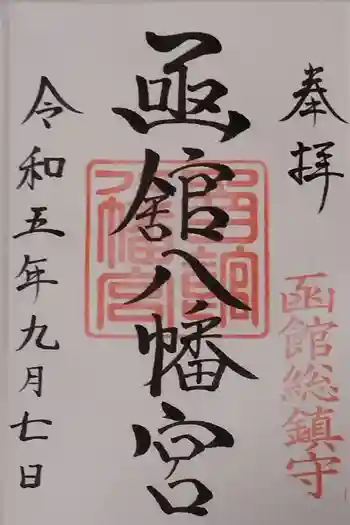 奉拝
函館総鎮守
函館八幡宮
函館八幡宮
令和五年九月七日